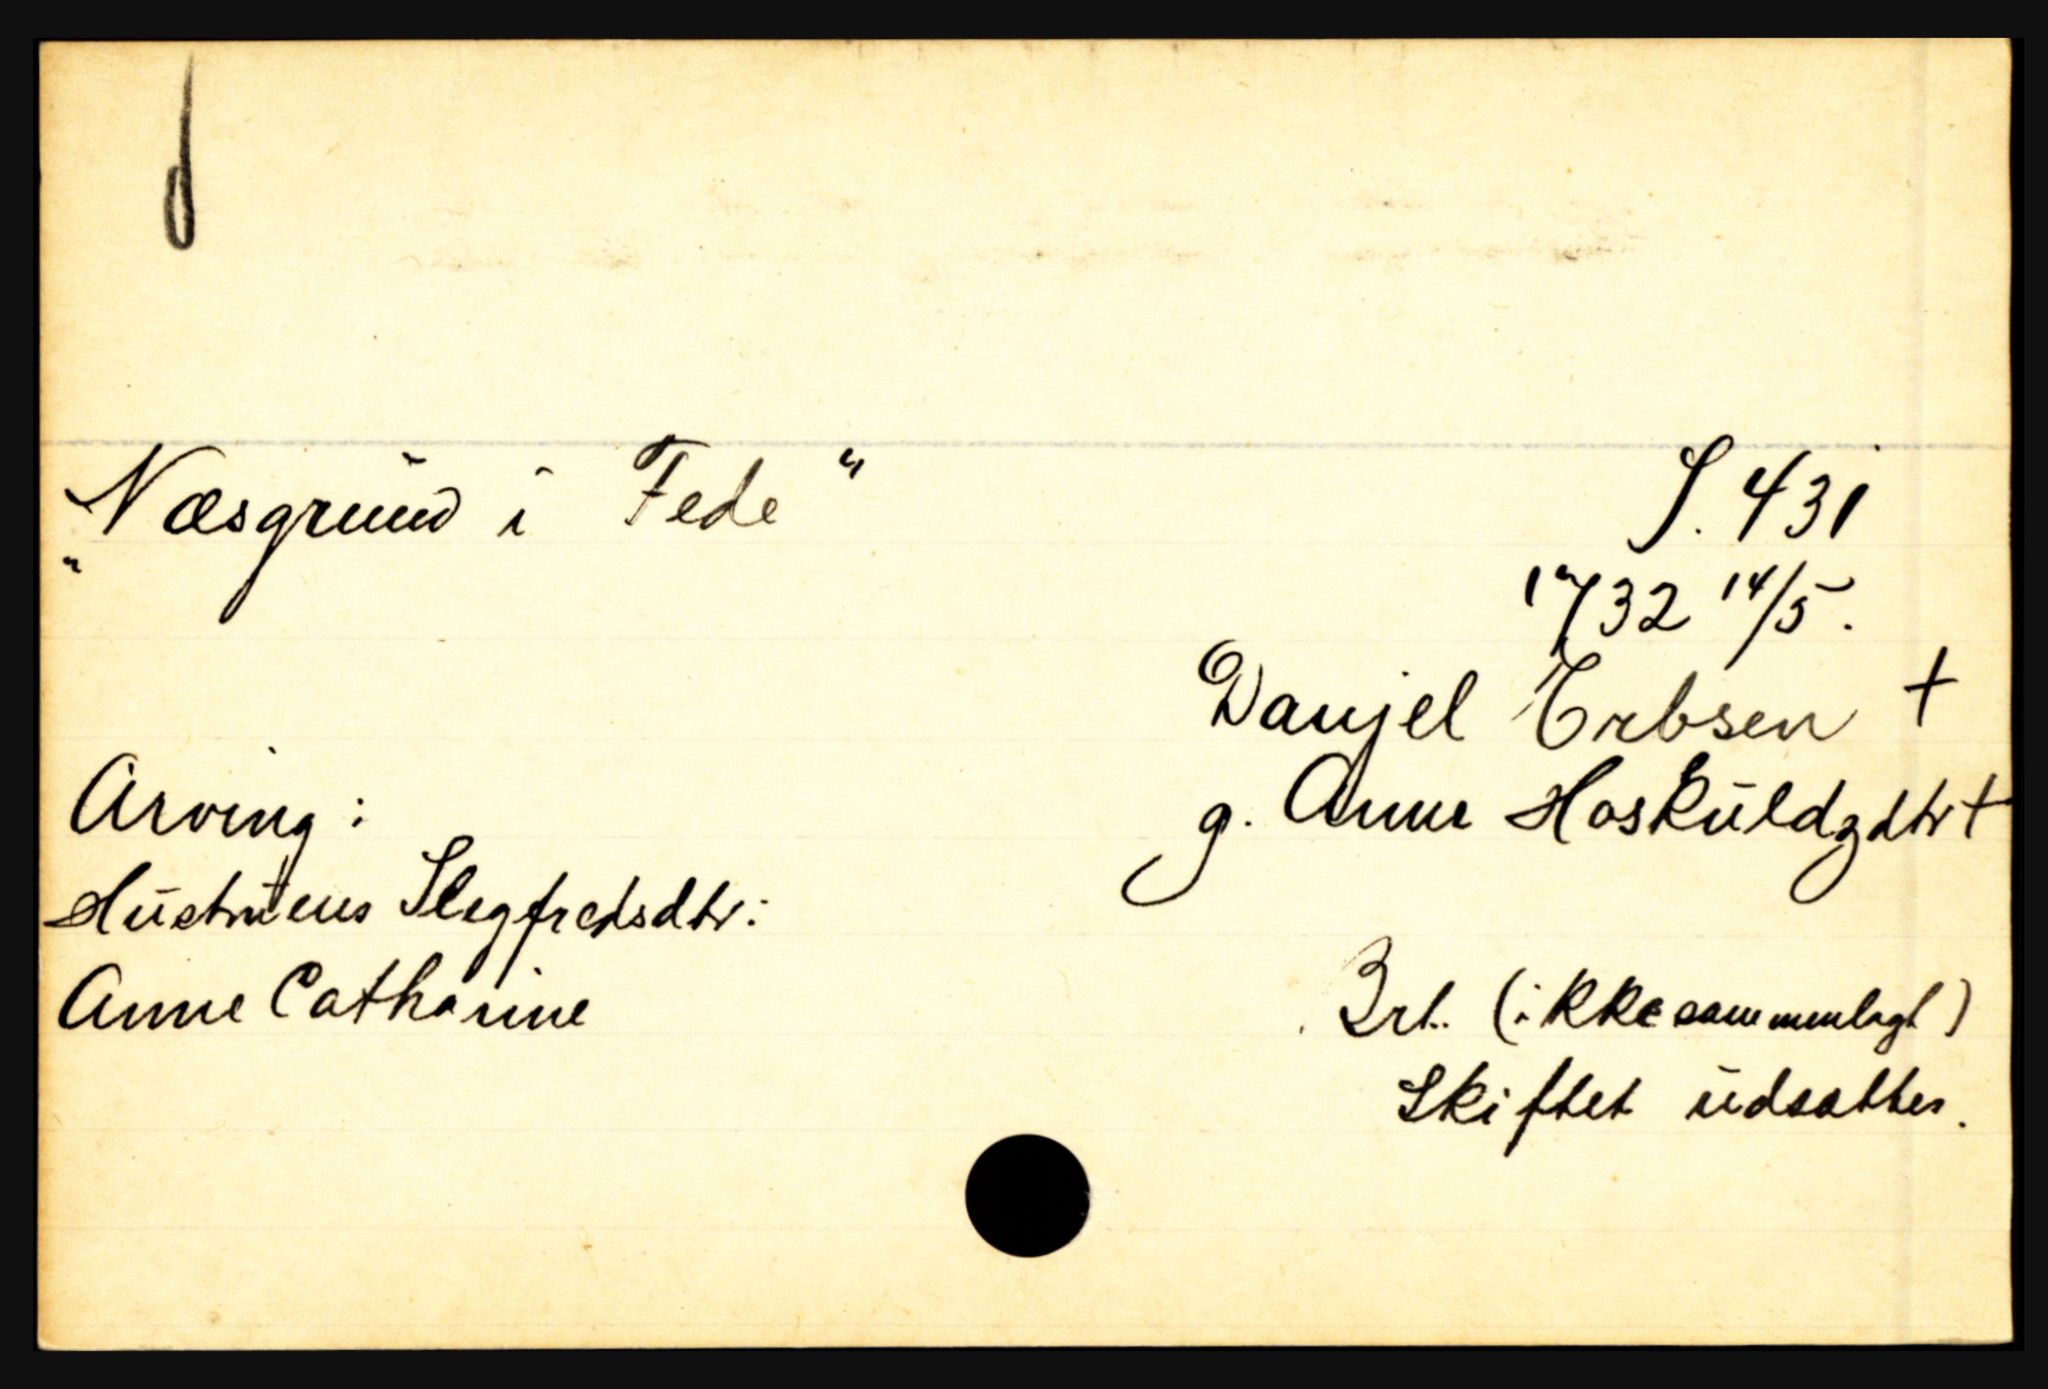 d
„Næsgrund i Fede"
S. 431
1732 14/5.
Danjel Erbsen +
g. Anne Hoskuldzdtr +
Arving:
Hustruens Slegfredsdtr:
Anne Catharine
Brt. (ikke sammenlagt)
Skiftet udsattes.